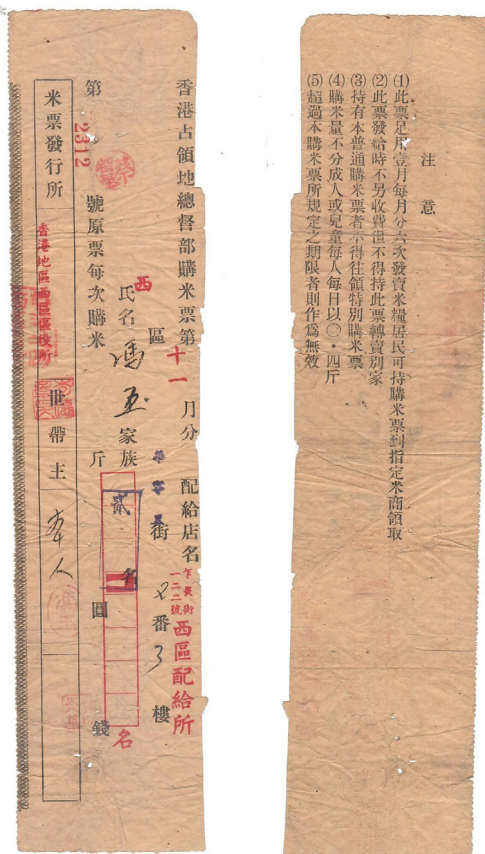 香港占領地總督部購米票第十一月分 配給店名 乍畏街一二二號 西區配給所
西區 街 2番3樓
氏名 馮五 家族 貳名 名
第2312號原票每次購米 斤 圓 錢
米票發行所 香港地區西區區役所 世帶主 本人
注意
(1)此票足用壹月每月分六次發賣米糧居民可持購米票到指定米商領取
(2)此票發給時不另收費但不得持此票轉賣別家
(3)持有本普通購米票者不得往領特別購米票
(4)購米量不分成人或兒童每人每日以〇・四斤
(5)超過本購米票所規定之期限者則作爲無效